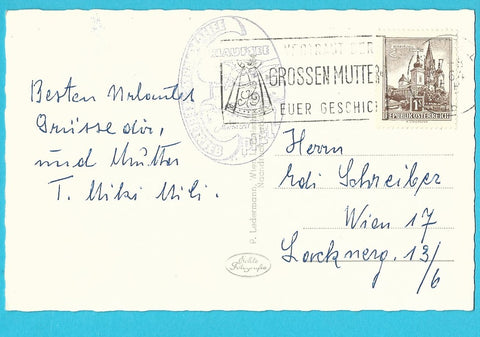 Besten Urlauts
Grüsse dir,
und Mutter
T. Miki Mili.
GROSSEN MUTTE
EUER GESCHICK
1S
REPUBLIK ÖSTERREICH
Herrn
Edi Schreiber
Wien 17
Lacknerg. 13/
6
P. Ledermann, W
Echte
Fotografie